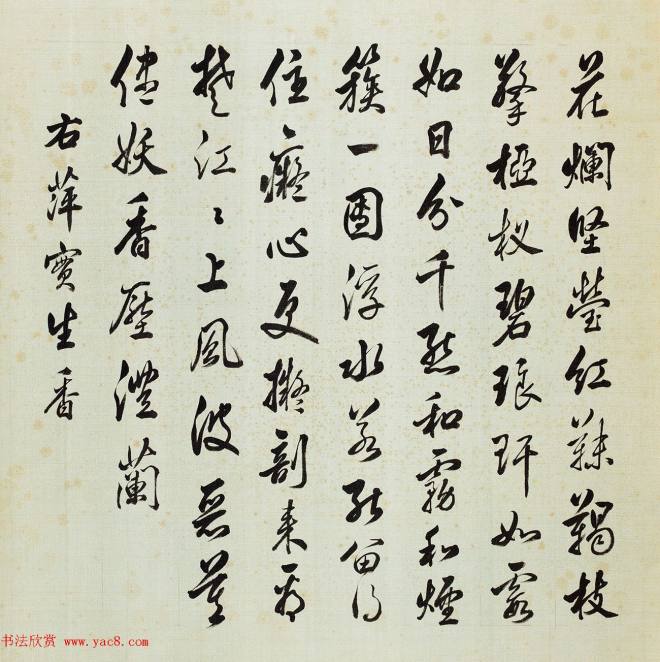 花爛堅瑩紅靺鞨枝
擎椏杈碧琅玕如霞
如日分千點和霧和煙
簇一團浮水若能留得
住癡心更擬剖來看
楚江〻上風波惡
儘妖香壓澧蘭
右萍實生香
书法欣赏 www.yac8.com